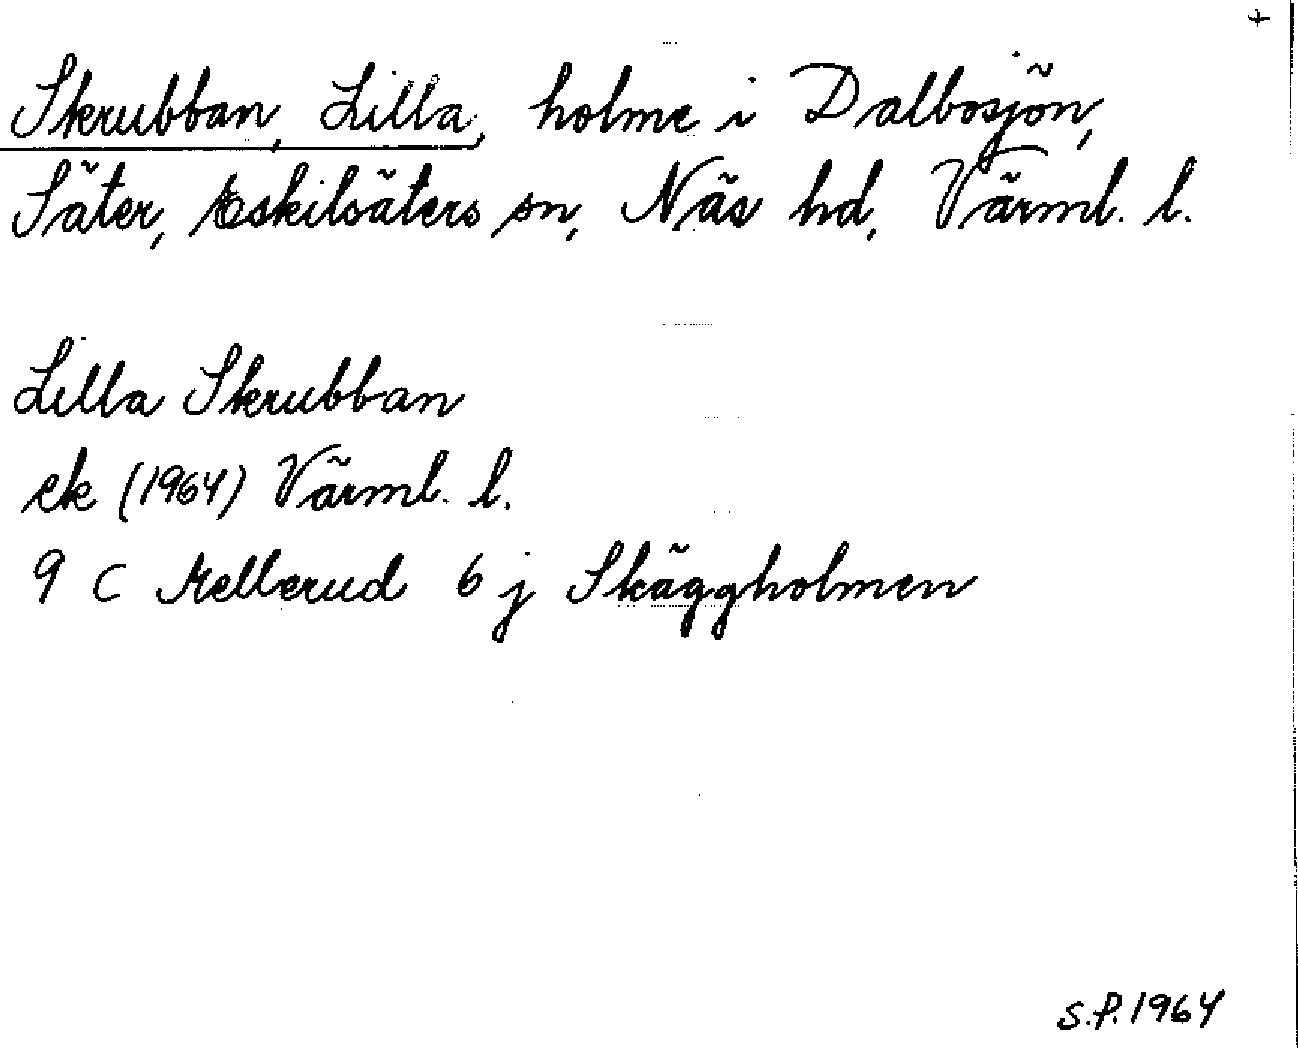 +
Skrubban, Lilla, holme i Dalbosjön,
Säter, Eskilsäters sn, Näs hd, Värml. l.
Lilla Skrubban
ek (1964) Värml. l.
9 C Mellerud 6 j Skäggholmen
S.P. 1964